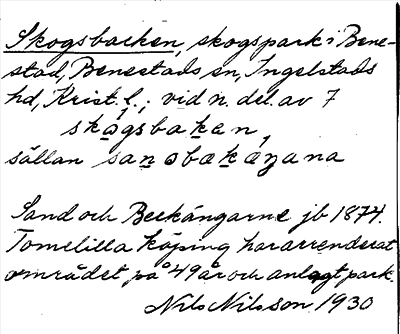 Skogsbacken, skogspark i Bene-
stad, Benestads sn, Ingelstads
hd, Krist. l.; vid n. del. av 7
skǫgsbakan,
sällan sanǫbækæŋana
Sand och Beckängarne jb 1874.
Tomelilla köping har arrenderat
området på 49 år och anlagt park.
Nils Nilsson 1930